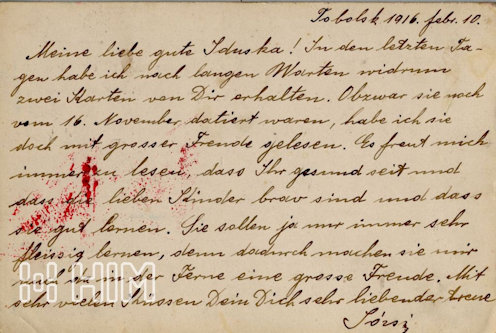 Tobolsk 1916. febr. 10.
Meine liebe gute Iduska! In den letzten Ta-
gen habe ich nach langen Warten widrum
zwei Karten von Dir erhalten. Obzwar sie noch
vom 16. November datiert waren, habe ich sie
doch mit grosser Freude gelesen. Es freut mich
immer zu lesen, dass Ihr gesund seit und
dass die lieben Kinder brav sind und dass
sie gut lernen. Sie sollen ja nur immer sehr
fleissig lernen, denn dadurch machen sie mir
auch in der Ferne eine grosse Freude. Mit
sehr vielen Küssen Dein Dich sehr liebender treue
HIM